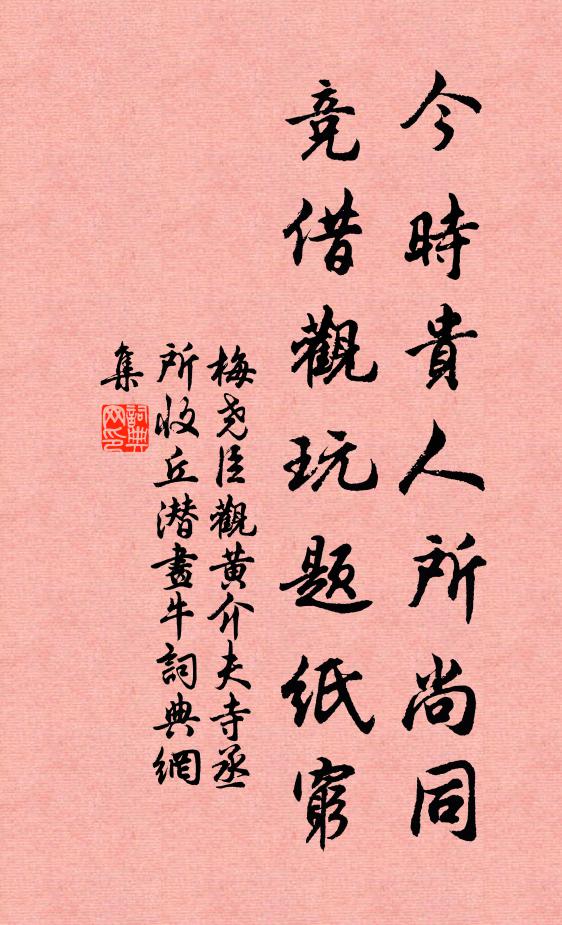 今時貴人所尚同
竞借觀玩題紙窮
梅尧臣觀黄介夫寺丞
所收丘潜畫牛詞典網
集
詞典网印